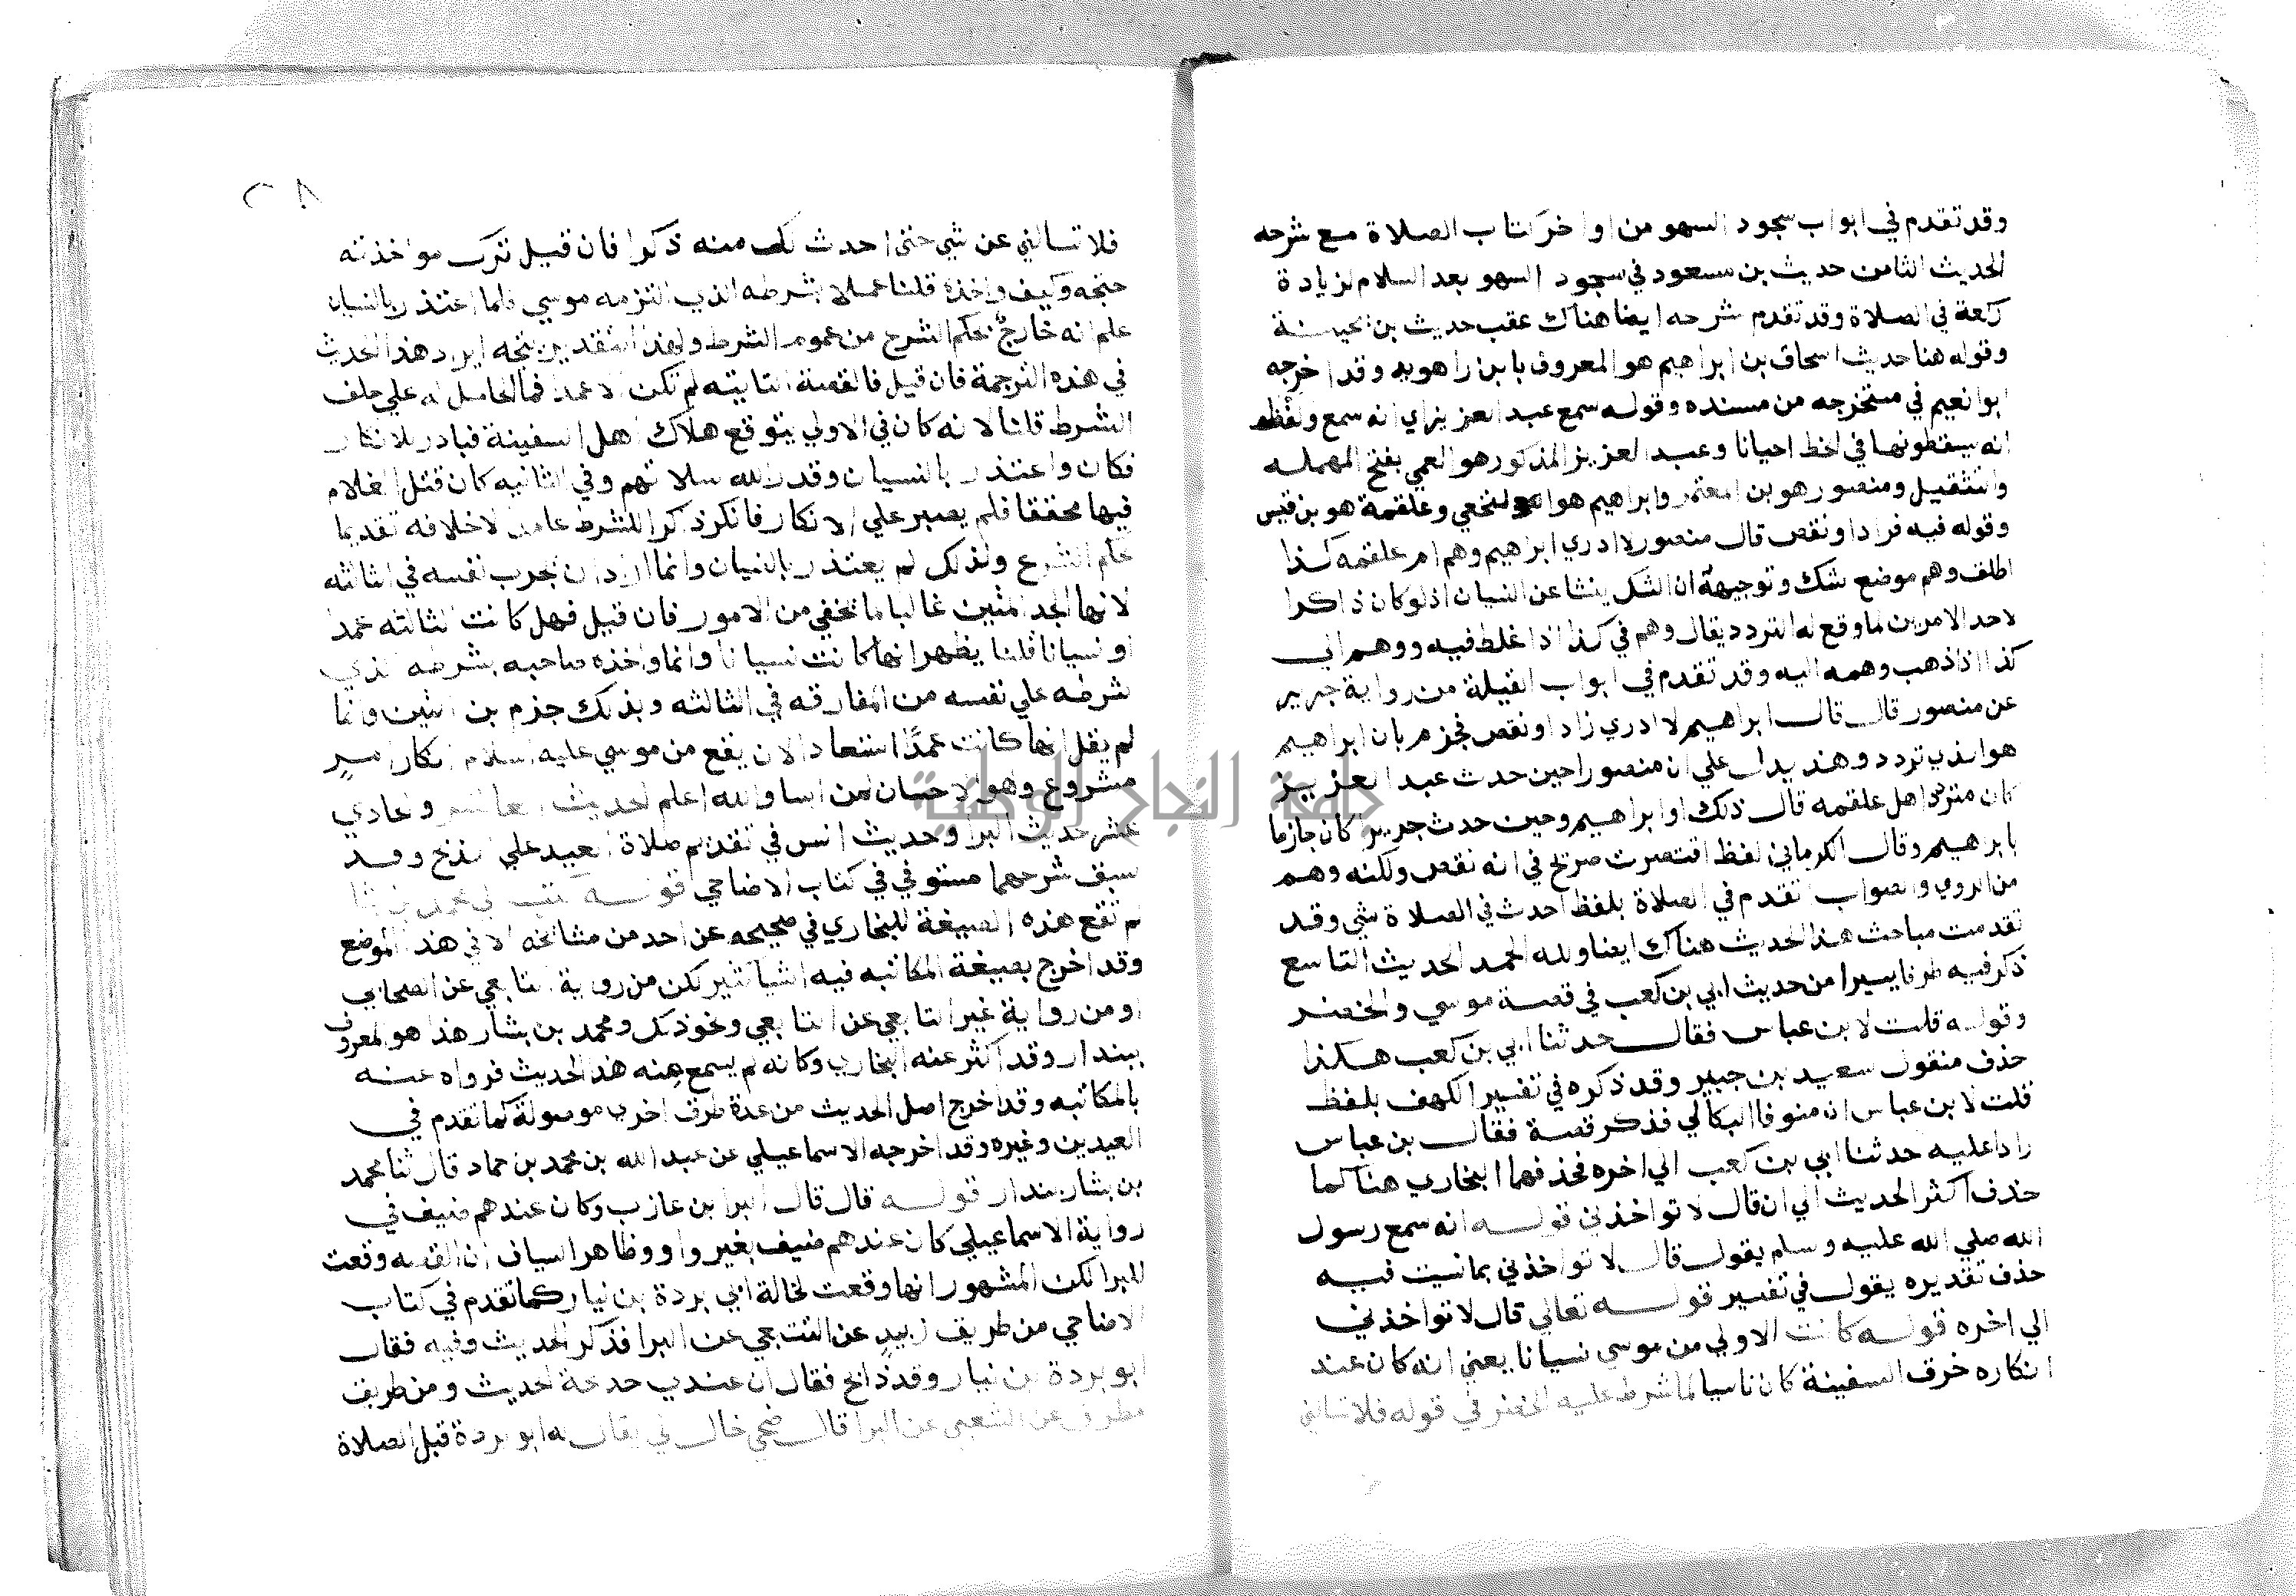 وقد تقدم في ابواب سجود السهو من اواخر كتاب الصلاة مع شرحه
الحديث الثامن حديث بن مسعود في سجود السهو بعد السلام لزيادة
ركعة في الصلاة وقد تقدم شرحه ايضا هناك عقب حديث بن بحينة
وقوله هنا حديث اسحاق بن ابراهيم هو المعروف بابن راهويه وقد اخرجه
ابو نعيم في مستخرجه من مسنده وقوله سمع عبد العزيز اي انه سمع ولفظه
انه يسقطونها في الخط احيانا وعبد العزيز المذكور هو العمي بفتح المهمله
والتثقيل ومنصور هو بن المعتمر وابراهيم هو النخعي وعلقمة هو بن قيس
وقوله فيه فزاد او نقص قال منصور لا ادري ابراهيم وهم ام علقمه كذا
اطلق وهم موضع شك وتوجيهه ان الشك ينشا عن النسيان اذ لو كان ذاكرا
لاحد الامرين لما وقع له التردد يقال وهم في كذا اذا غلط فيه ووهم الي
كذا اذا ذهب وهمه اليه وقد تقدم في ابواب القبلة من رواية جرير
عن منصور قال قال ابراهيم لا ادري زاد او نقص فجزم بان ابراهيم
هو الذي تردد وهذ يدل علي ان منصورا حين حدث عبد العزيز
كان مترددا هل علقمه قال ذلك او ابراهيم وحين حدث جرير كان جازما
بابرهيم وقال الكرماني لفظ اقتصرت صريح في انه نقص ولكنه وهم
من الروي والصواب ما تقدم في الصلاة بلفظ احدث في الصلاة شي وقد
تقدمت مباحث هذا الحديث هناك ايضا ولله الحمد الحديث التاسع
ذكر فيه طرفا يسيرا من حديث ابي بن كعب في قصة موسي والخضر
وقوله قلت لابن عباس فقال حدثنا ابي بن كعب هكذا
حذف مقول سعيد بن جبير وقد ذكره في تفسير الكهف بلفظ
قلت لابن عباس ان منوفا البكالي فذكر قصة فقال بن عباس
رادا عليه حدثنا ابي بن كعب الي اخره فحذفهما البخاري هنا كما
حذف اكثر الحديث الي ان قال لا تواخذني قوله انه سمع رسول
الله صلي الله عليه وسلم يقول قال لا تواخذني بما نسيت فيه
حذف تقديره يقول في تفسير قوله تعالي قال لا تواخذني
الي اخره قوله كانت الاولي من موسي نسيانا يعني انه كان عند
انكاره خرق السفينة كان ناسيا لما شرط عليه الخضر في قوله فلا تسالني
٢٨
فلا تسالني عن شي حتي احدث لك منه ذكرا فان قيل ترك مواخذته
متجه وكيف واخذه قلنا عملا بشرطه الذي التزمه موسي فلما اعتذر بالنسيان
علم انه خارج بحكم الشرع من عموم الشرط وبهذا التقدير يتجه ايراد هذا الحديث
في هذه الترجمة فان قيل فالقصة الثانيه لم تكن الا عمدا فما الحامل له علي خلف
الشرط قلنا لانه كان في الاولي يتوقع هلاك اهل السفينة فبادر للانكار
فكان واعتذر بالنسيان وقدر الله سلامتهم وفي الثانيه كان قتل الغلام
فيها محققا فلم يصبر علي الانكار فانكر ذكرا للشرط عامدا لاخلافه تقديما
لحكم الشرع ولذلك لم يعتذر بالنسيان وانما اراد ان يجرب نفسه في الثالثه
لانها الحد المبين غالبا لما يخفي من الامور فان قيل فهل كانت الثالثه عمدا
او نسيانا قلنا يظهر انها كانت نسيانا وانما واخذه صاحبه بشرطه الذي
شرطه علي نفسه من المفارقه في الثالثه وبذلك جزم بن التين وانما
لم يقل انها كانت عمدًا استبعادا لان يقع من موسي عليه السلام انكار امر
مشروع وهو الاحسان لمن اسا والله اعلم الحديث العاشر والحادي
عشر حديث البرا وحديث انس في تقديم صلاة العيد علي الذبح وقد
سبق شرحهما مستوفي في كتاب الاضاحي قوله كتب الي محمد بن بشار
لم تقع هذه الصيغة للبخاري في صحيحه عن احد من مشائخه الا في هذا الموضع
وقد اخرج بصيغة المكاتبه فيه اشيا كثير لكن من رواية التابعي عن الصحابي
او من رواية غير التابعي عن التابعي ونحو ذلك ومحمد بن بشار هذا هو المعروف
ببندار وقد اكثر عنه البخاري وكانه لم يسمع منه هذا الحديث فرواه عنه
بالمكاتبه وقد اخرج اصل الحديث من عدة طرق اخري موصولة كما تقدم في
العيدين وغيره وقد اخرجه الاسماعيلي عن عبد الله بن محمد بن حماد قال ثنا محمد
بن بشار بندار قوله قال قال البرا بن عازب وكان عندهم ضيف في
رواية الاسماعيلي كان عندهم ضيف بغير واو وظاهر السياق ان القصه وقعت
للبرا لكن المشهور انها وقعت لخالة ابي بردة بن نيار كما تقدم في كتاب
الاضاحي من طريق زبيد عن الشعبي عن البرا فذكر الحديث وفيه فقال
ابو بردة بن نيار وقد ذبح فقال ان عندي جدعة الحديث ومن طريق
مطرف عن الشعبي عن البرا قال ضحي خال لي يقال له ابو بردة قبل الصلاة
جامعة النجاح الوطنية